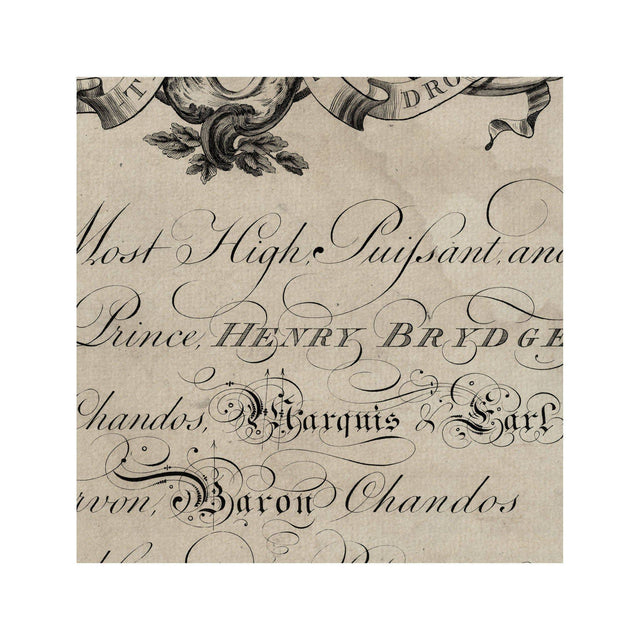 HT DRO
Most High, Puiſsant, and
Prince, HENRY BRYDGE
Chandos, Marquis & Earl
rvon, Baron Chandos